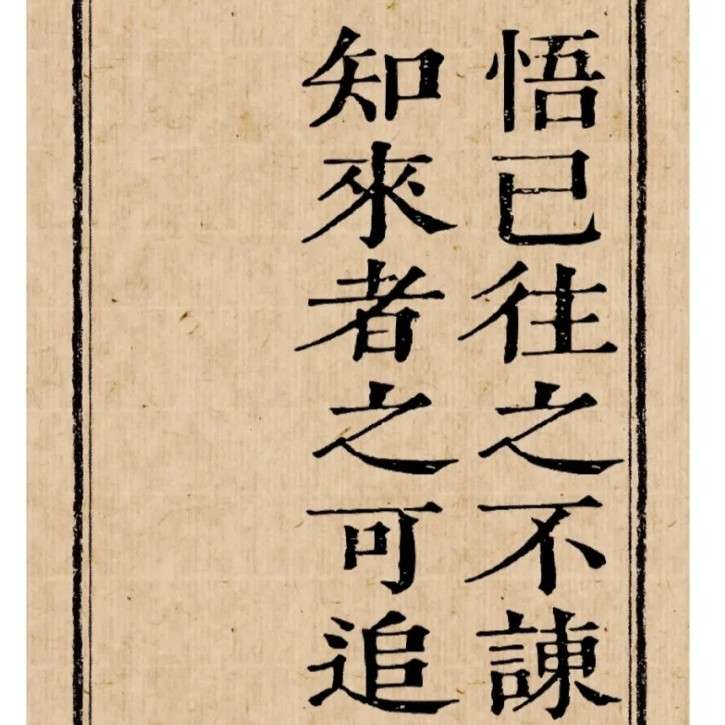 悟已往之不諫
知來者之可追